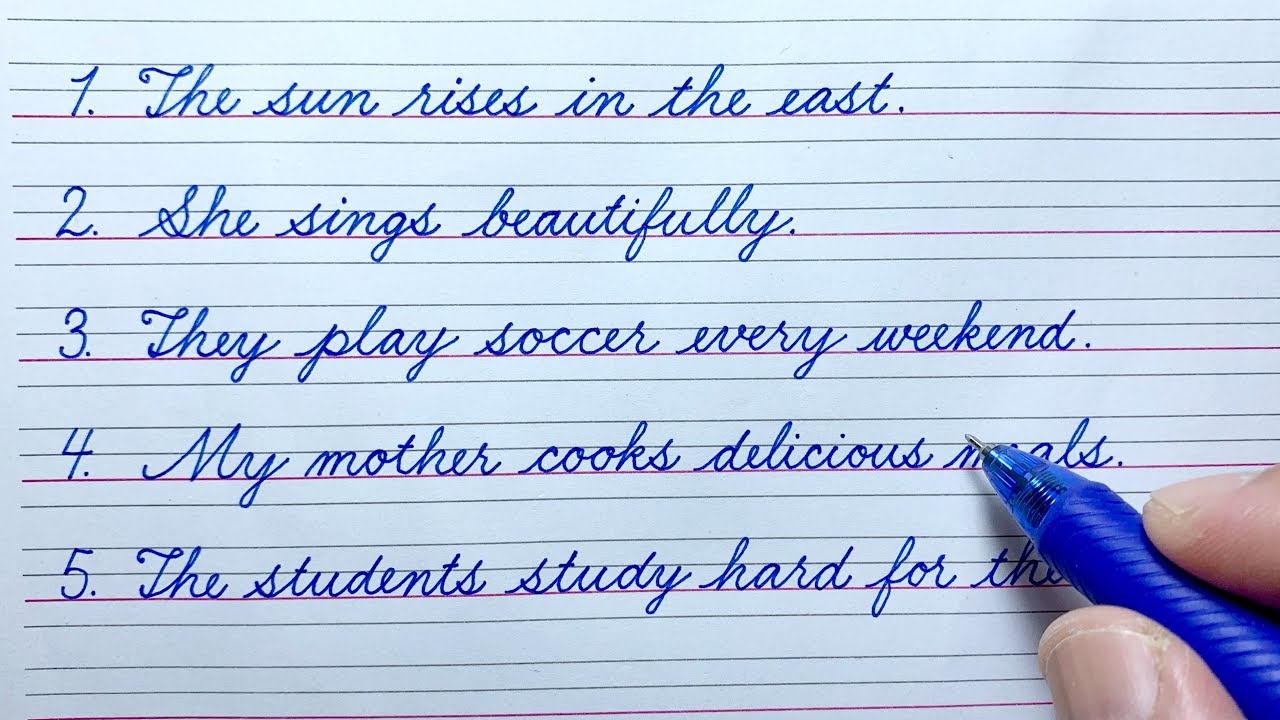 1. The sun rises in the east.
2. She sings beautifully.
3. They play soccer every weekend.
4. My mother cooks delicious meals.
5. The students study hard for